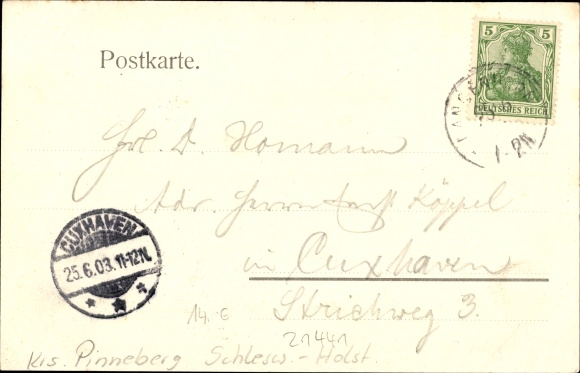 5 5
DEUTSCHES REICH
Postkarte.
LANGEN
Frl. D. Homann
Adr. Herrn Köppel
in Cuxhaven
Strichweg 3.
CUXHAVEN
25.6.03.11-12N.
14.-€
21441
Krs. Pinneberg Schlesw.-Holst.